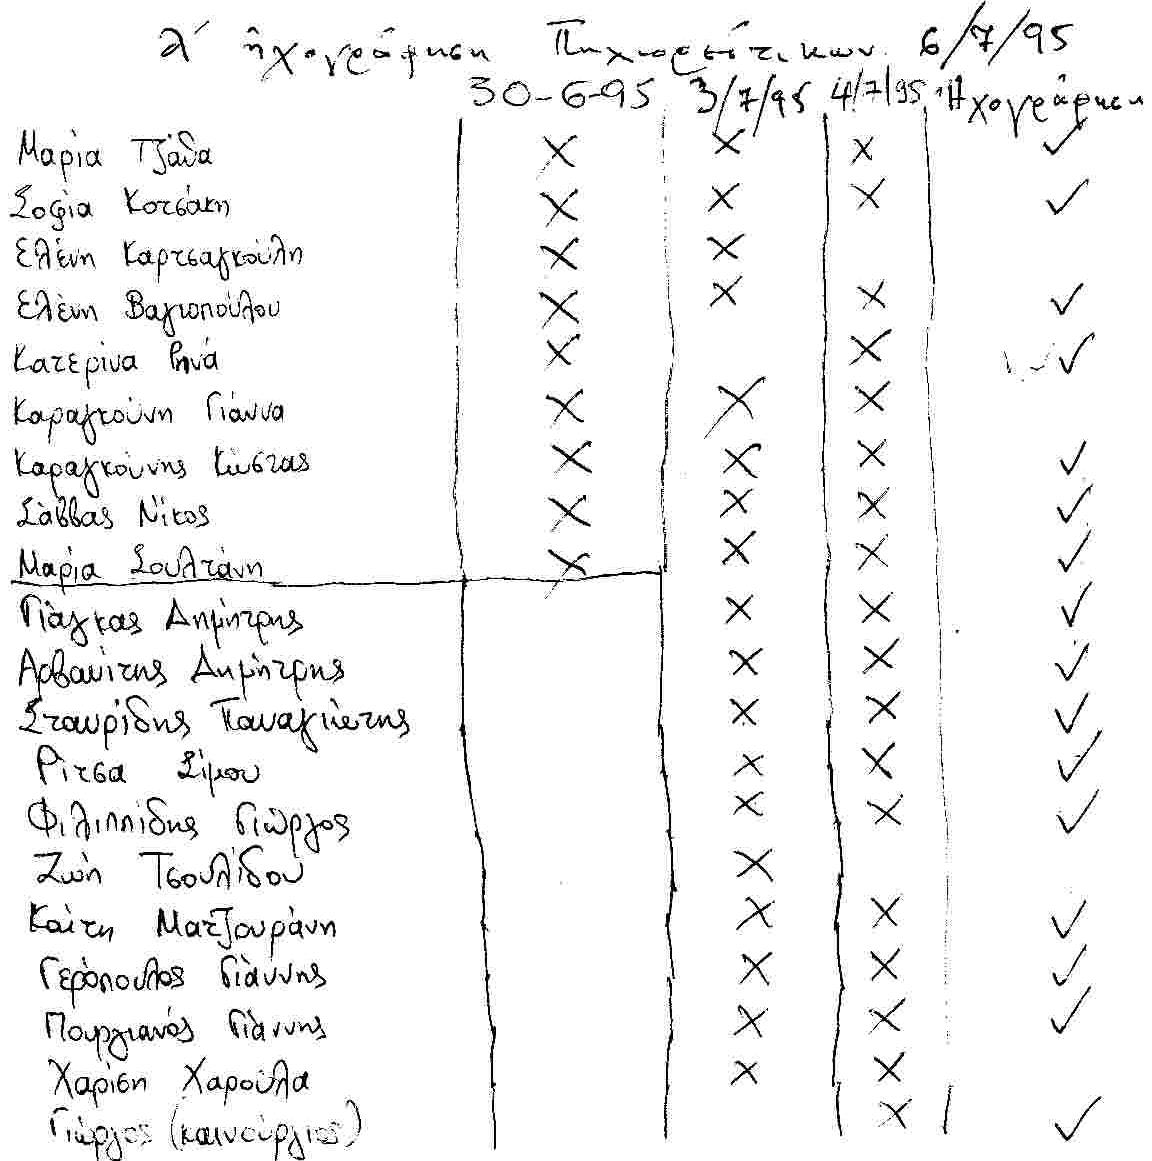 Α΄ ἠχογράφηση Πηχιορείτικων 6/7/95
30-6-95 3/7/95 4/7/95 Ἠχογράφηση
Μαρία Τζάθα X X X ✓
Σοφία Κοτσάκη X X X ✓
Ελένη Καρτσαγκούλη X X
Ελένη Βαγιοπούλου X X X ✓
Κατερίνα X X ✓
Καραγκούνη Γιάννα X X X
Καραγκούνης Κώστας X X X ✓
Σάββας Νίκος X X X ✓
Μαρία Σουλτάνη X X X ✓
Γιάγκας Δημήτρης X X ✓
Αρβανίτης Δημήτρης X X ✓
Σταυρίδης Παναγιώτης X X ✓
Ρίτσα Σίμου X X ✓
Φιλιππίδης Γιώργος X X ✓
Ζωή Τσουλίδου X
Καίτη Ματζουράνη X X ✓
Γερόπουλος Γιάννης X X ✓
Πουργιανός Γιάννης X X ✓
Χαρίση Χαρούλα X X
Γιώργος (καινούργιος) X ✓